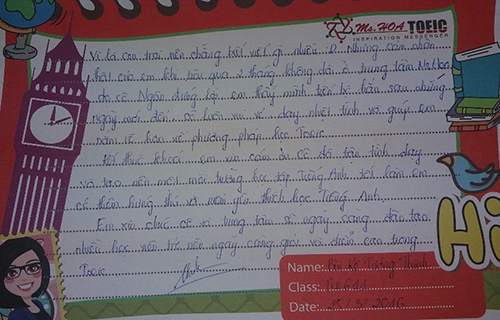 Ms. HOA TOEIC
INSPIRATION MESSENGER
Vì là con trai nên chẳng biết viết gì nhiều :D. Những cảm nhận
thật của em khi trải qua 2 tháng không dài ở trung tâm Ms Hoa
do cô Ngân đứng lớp em thấy mình tiến bộ hẳn sau những
ngày mới đến. Cô luôn vui vẻ dạy nhiệt tình và giúp em
nắm rõ hơn về phương pháp học Toeic.
Kết thúc khóa em xin cám ơn cô đã tận tình dạy
và tạo nên một môi trường học tập Tiếng Anh tốt làm em
có thêm hứng thú và niềm yêu thích học Tiếng Anh.
Em xin chúc cô và trung tâm sẽ ngày càng đào tạo
nhiều học viên trở nên ngày càng giỏi và điểm cao trong
Toeic.
Hi
Name: Tường Thịnh
Class:
Date: 25/3/2016